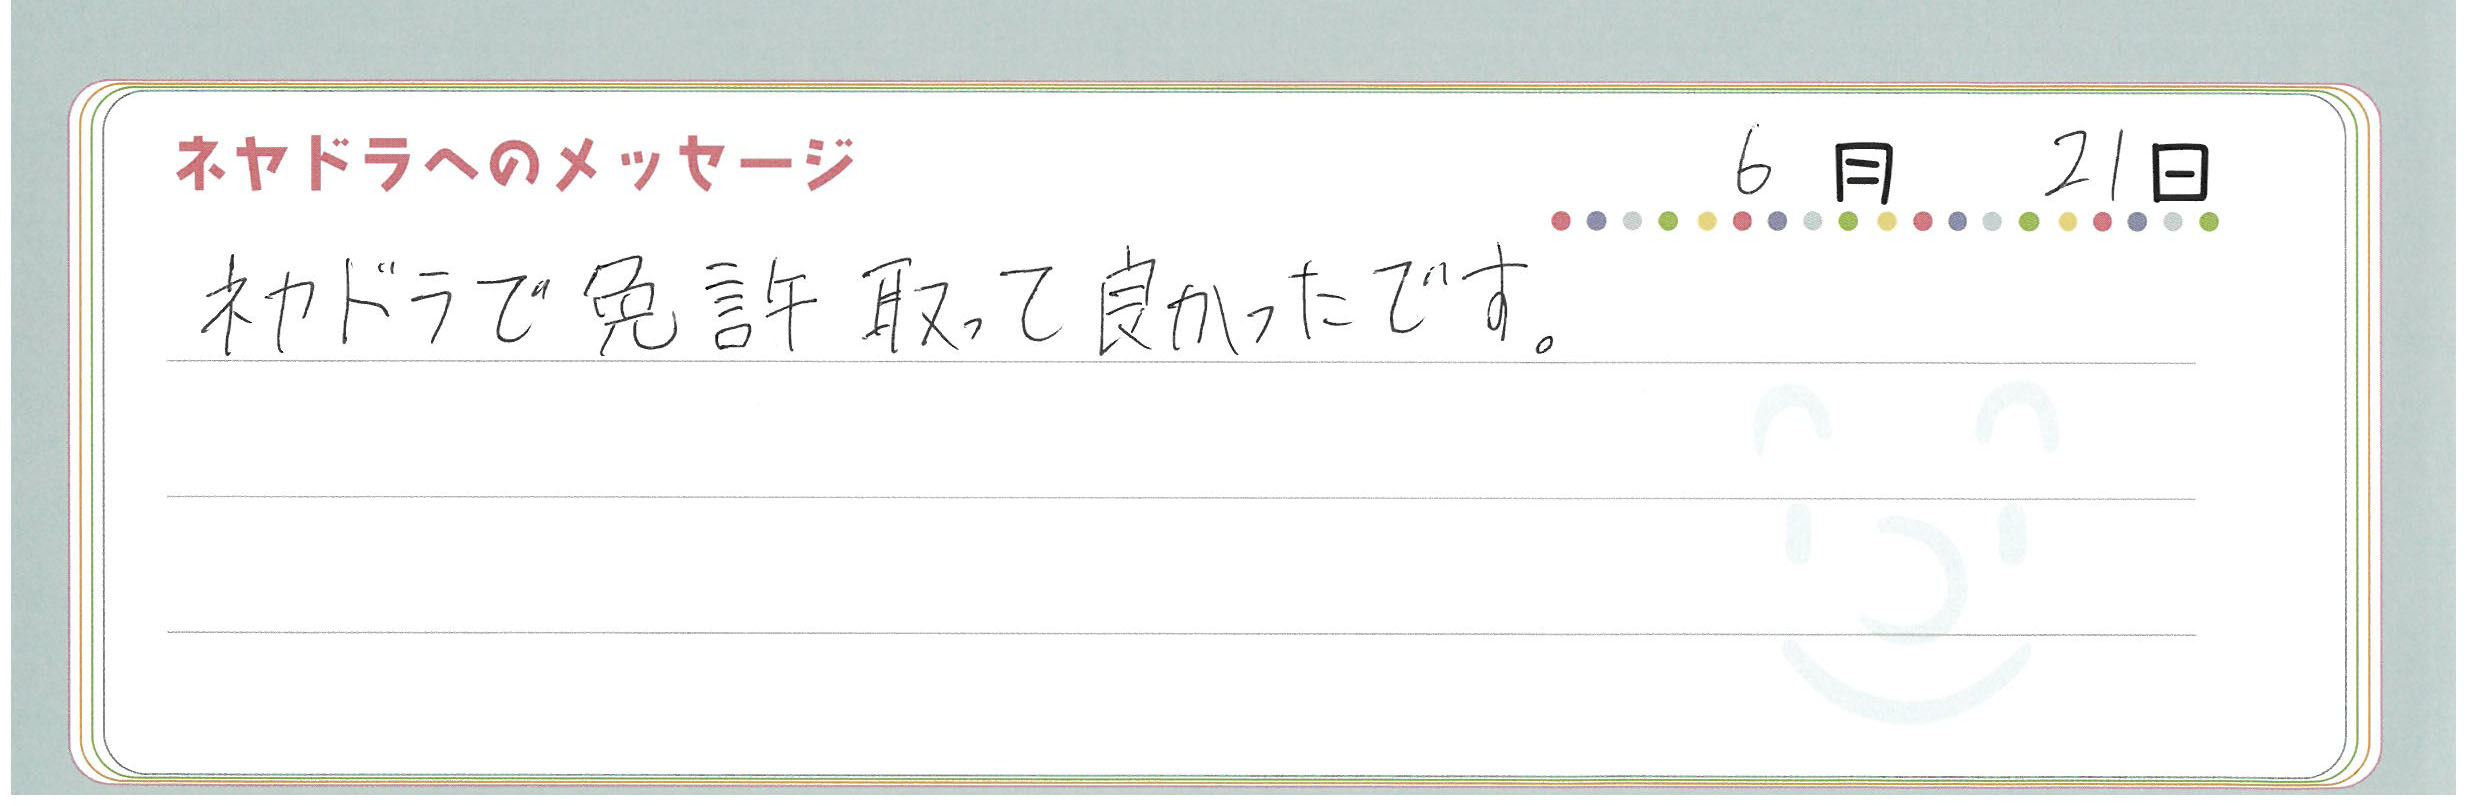 ネヤドラへのメッセージ
6月 21日
ネヤドラで免許取って良かったです。